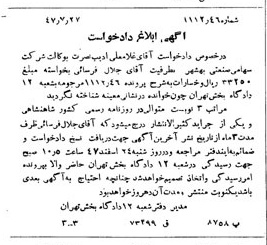 شماره ۱۱۱۲ر۴۶ ۴۷ر۷ر۲۷
آگهی ابلاغ دادخواست
درخصوص دادخواست آقای غلامعلی ادیب نصرت بوکالت شرکت
سهامی صنعتی بهشهر بطرفیت آقای جلال فرسائی بخواسته مبلغ
۲۳۲۵۰ ریال وخسارات بشرح پرونده ۱۱۱۲ر۴۶ مرجوعه بشعبه ۱۲
دادگاه بخش تهران چون خوانده درنشانی معینه شناخته نگردید
مراتب ۳ نوبت متوالی در روزنامه رسمی کشور شاهنشاهی
و یکی از جراید کثیرالانتشار درج میشود که آقای جلال فرسائی ظرف
مدت ۳ ماه از تاریخ نشر آخرین آگهی جهت دریافت نسخ دادخواست و
ضمائم بدفتر مراجعه و در روز شنبه ۲۴ اسفند ۴۷ ساعت ۱۰ر۵ صبح
جهت رسیدگی در شعبه ۱۲ دادگاه بخش تهران حاضر والا بپرونده
امر رسیدگی واتخاذ تصمیم خواهد شد چنانچه احتیاج به آگهی بعدی
باشد یکنوبت منتشر و مدت آن ده روز خواهد بود
مدیر دفتر شعبه ۱۲ دادگاه بخش تهران
پ ۸۷۵۸ ق ۷۳۴۹۹ ۳ــ۳